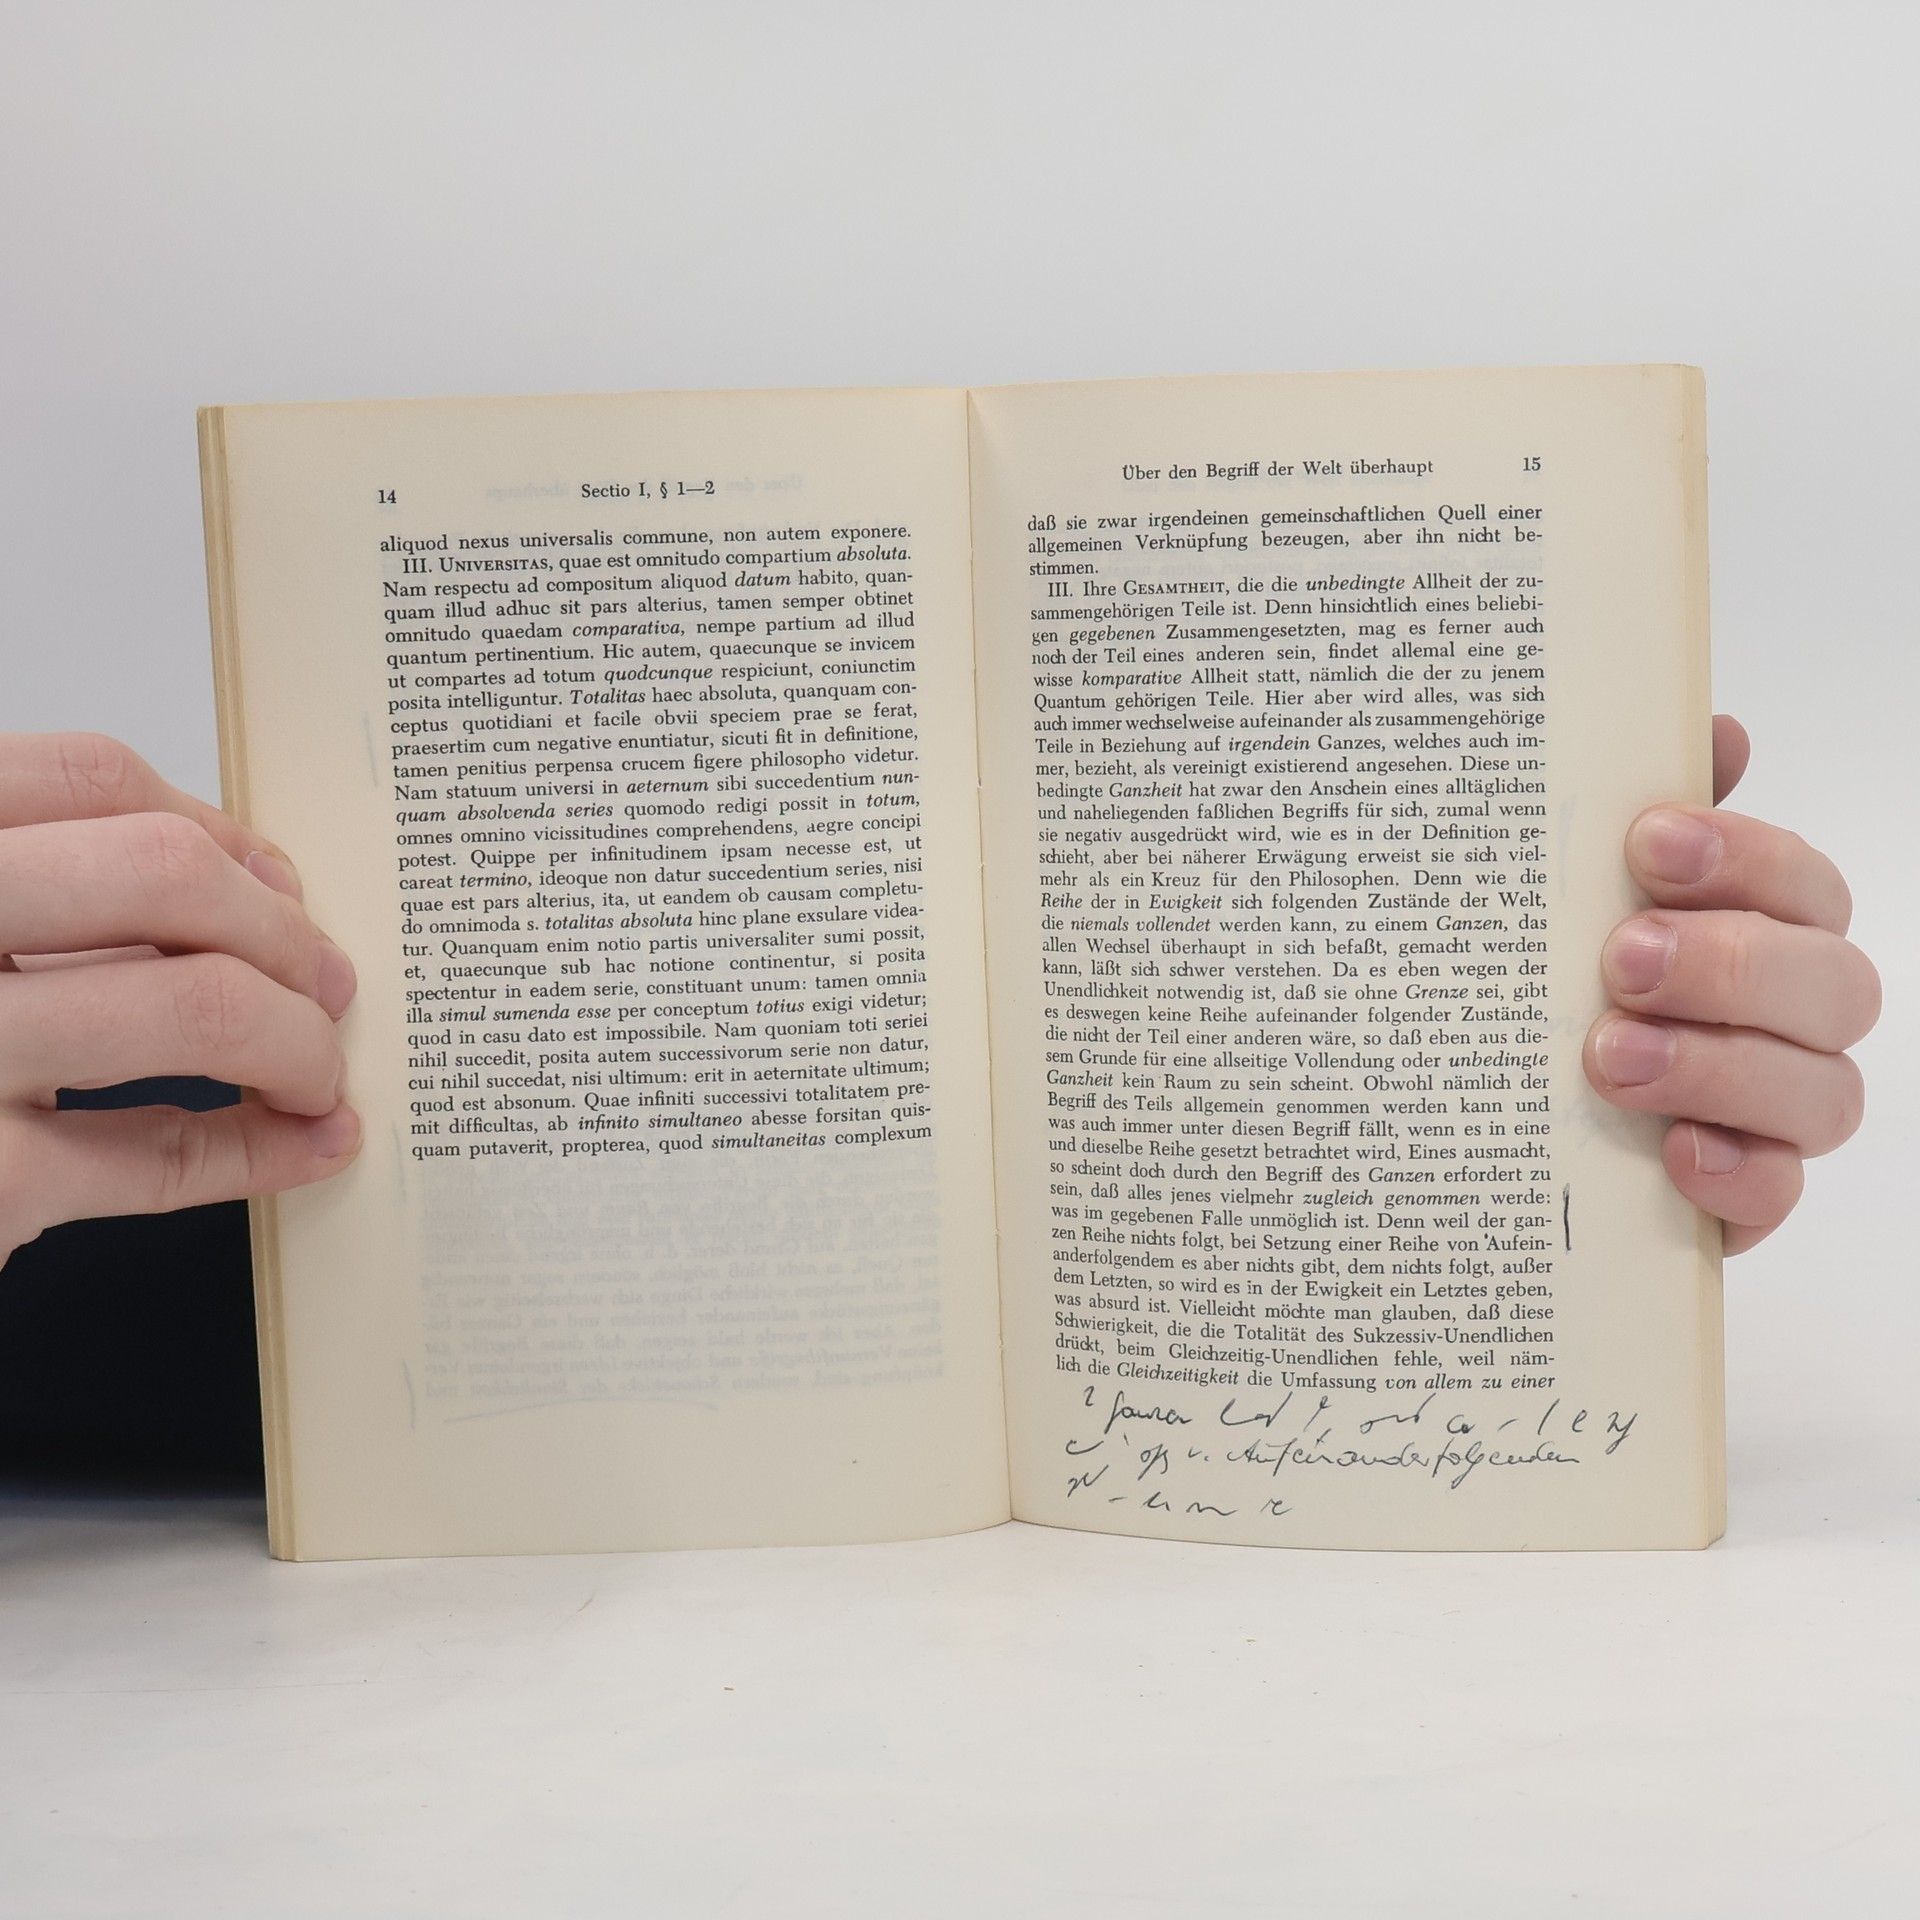 14 Sectio I, § 1—2
aliquod nexus universalis commune, non autem exponere.
III. UNIVERSITAS, quae est omnitudo compartium absoluta.
Nam respectu ad compositum aliquod datum habito, quan-
quam illud adhuc sit pars alterius, tamen semper obtinet
omnitudo quaedam comparativa, nempe partium ad illud
quantum pertinentium. Hic autem, quaecunque se invicem
ut compartes ad totum quodcunque respiciunt, coniunctim
posita intelliguntur. Totalitas haec absoluta, quanquam con-
ceptus quotidiani et facile obvii speciem prae se ferat,
praesertim cum negative enuntiatur, sicuti fit in definitione,
tamen penitius perpensa crucem figere philosopho videtur.
Nam statuum universi in aeternum sibi succedentium nun-
quam absolvenda series quomodo redigi possit in totum,
omnes omnino vicissitudines comprehendens, aegre concipi
potest. Quippe per infinitudinem ipsam necesse est, ut
careat termino, ideoque non datur succedentium series, nisi
quae est pars alterius, ita, ut eandem ob causam completu-
do omnimoda s. totalitas absoluta hinc plane exsulare videa-
tur. Quanquam enim notio partis universaliter sumi possit,
et, quaecunque sub hac notione continentur, si posita
spectentur in eadem serie, constituant unum: tamen omnia
illa simul sumenda esse per conceptum totius exigi videtur;
quod in casu dato est impossibile. Nam quoniam toti seriei
nihil succedit, posita autem successivorum serie non datur,
cui nihil succedat, nisi ultimum: erit in aeternitate ultimum;
quod est absonum. Quae infiniti successivi totalitatem pre-
mit difficultas, ab infinito simultaneo abesse forsitan quis-
quam putaverit, propterea, quod simultaneitas complexum
Über den Begriff der Welt überhaupt 15
daß sie zwar irgendeinen gemeinschaftlichen Quell einer
allgemeinen Verknüpfung bezeugen, aber ihn nicht be-
stimmen.
III. Ihre GESAMTHEIT, die die unbedingte Allheit der zu-
sammengehörigen Teile ist. Denn hinsichtlich eines beliebi-
gen gegebenen Zusammengesetzten, mag es ferner auch
noch der Teil eines anderen sein, findet allemal eine ge-
wisse komparative Allheit statt, nämlich die der zu jenem
Quantum gehörigen Teile. Hier aber wird alles, was sich
auch immer wechselweise aufeinander als zusammengehörige
Teile in Beziehung auf irgendein Ganzes, welches auch im-
mer, bezieht, als vereinigt existierend angesehen. Diese un-
bedingte Ganzheit hat zwar den Anschein eines alltäglichen
und naheliegenden faßlichen Begriffs für sich, zumal wenn
sie negativ ausgedrückt wird, wie es in der Definition ge-
schieht, aber bei näherer Erwägung erweist sie sich viel-
mehr als ein Kreuz für den Philosophen. Denn wie die
Reihe der in Ewigkeit sich folgenden Zustände der Welt,
die niemals vollendet werden kann, zu einem Ganzen, das
allen Wechsel überhaupt in sich befaßt, gemacht werden
kann, läßt sich schwer verstehen. Da es eben wegen der
Unendlichkeit notwendig ist, daß sie ohne Grenze sei, gibt
es deswegen keine Reihe aufeinander folgender Zustände,
die nicht der Teil einer anderen wäre, so daß eben aus die-
sem Grunde für eine allseitige Vollendung oder unbedingte
Ganzheit kein Raum zu sein scheint. Obwohl nämlich der
Begriff des Teils allgemein genommen werden kann und
was auch immer unter diesen Begriff fällt, wenn es in eine
und dieselbe Reihe gesetzt betrachtet wird, Eines ausmacht,
so scheint doch durch den Begriff des Ganzen erfordert zu
sein, daß alles jenes vielmehr zugleich genommen werde:
was im gegebenen Falle unmöglich ist. Denn weil der gan-
zen Reihe nichts folgt, bei Setzung einer Reihe von Aufein-
anderfolgendem es aber nichts gibt, dem nichts folgt, außer
dem Letzten, so wird es in der Ewigkeit ein Letztes geben,
was absurd ist. Vielleicht möchte man glauben, daß diese
Schwierigkeit, die die Totalität des Sukzessiv-Unendlichen
drückt, beim Gleichzeitig-Unendlichen fehle, weil näm-
lich die Gleichzeitigkeit die Umfassung von allem zu einer
Aufeinanderfolgenden